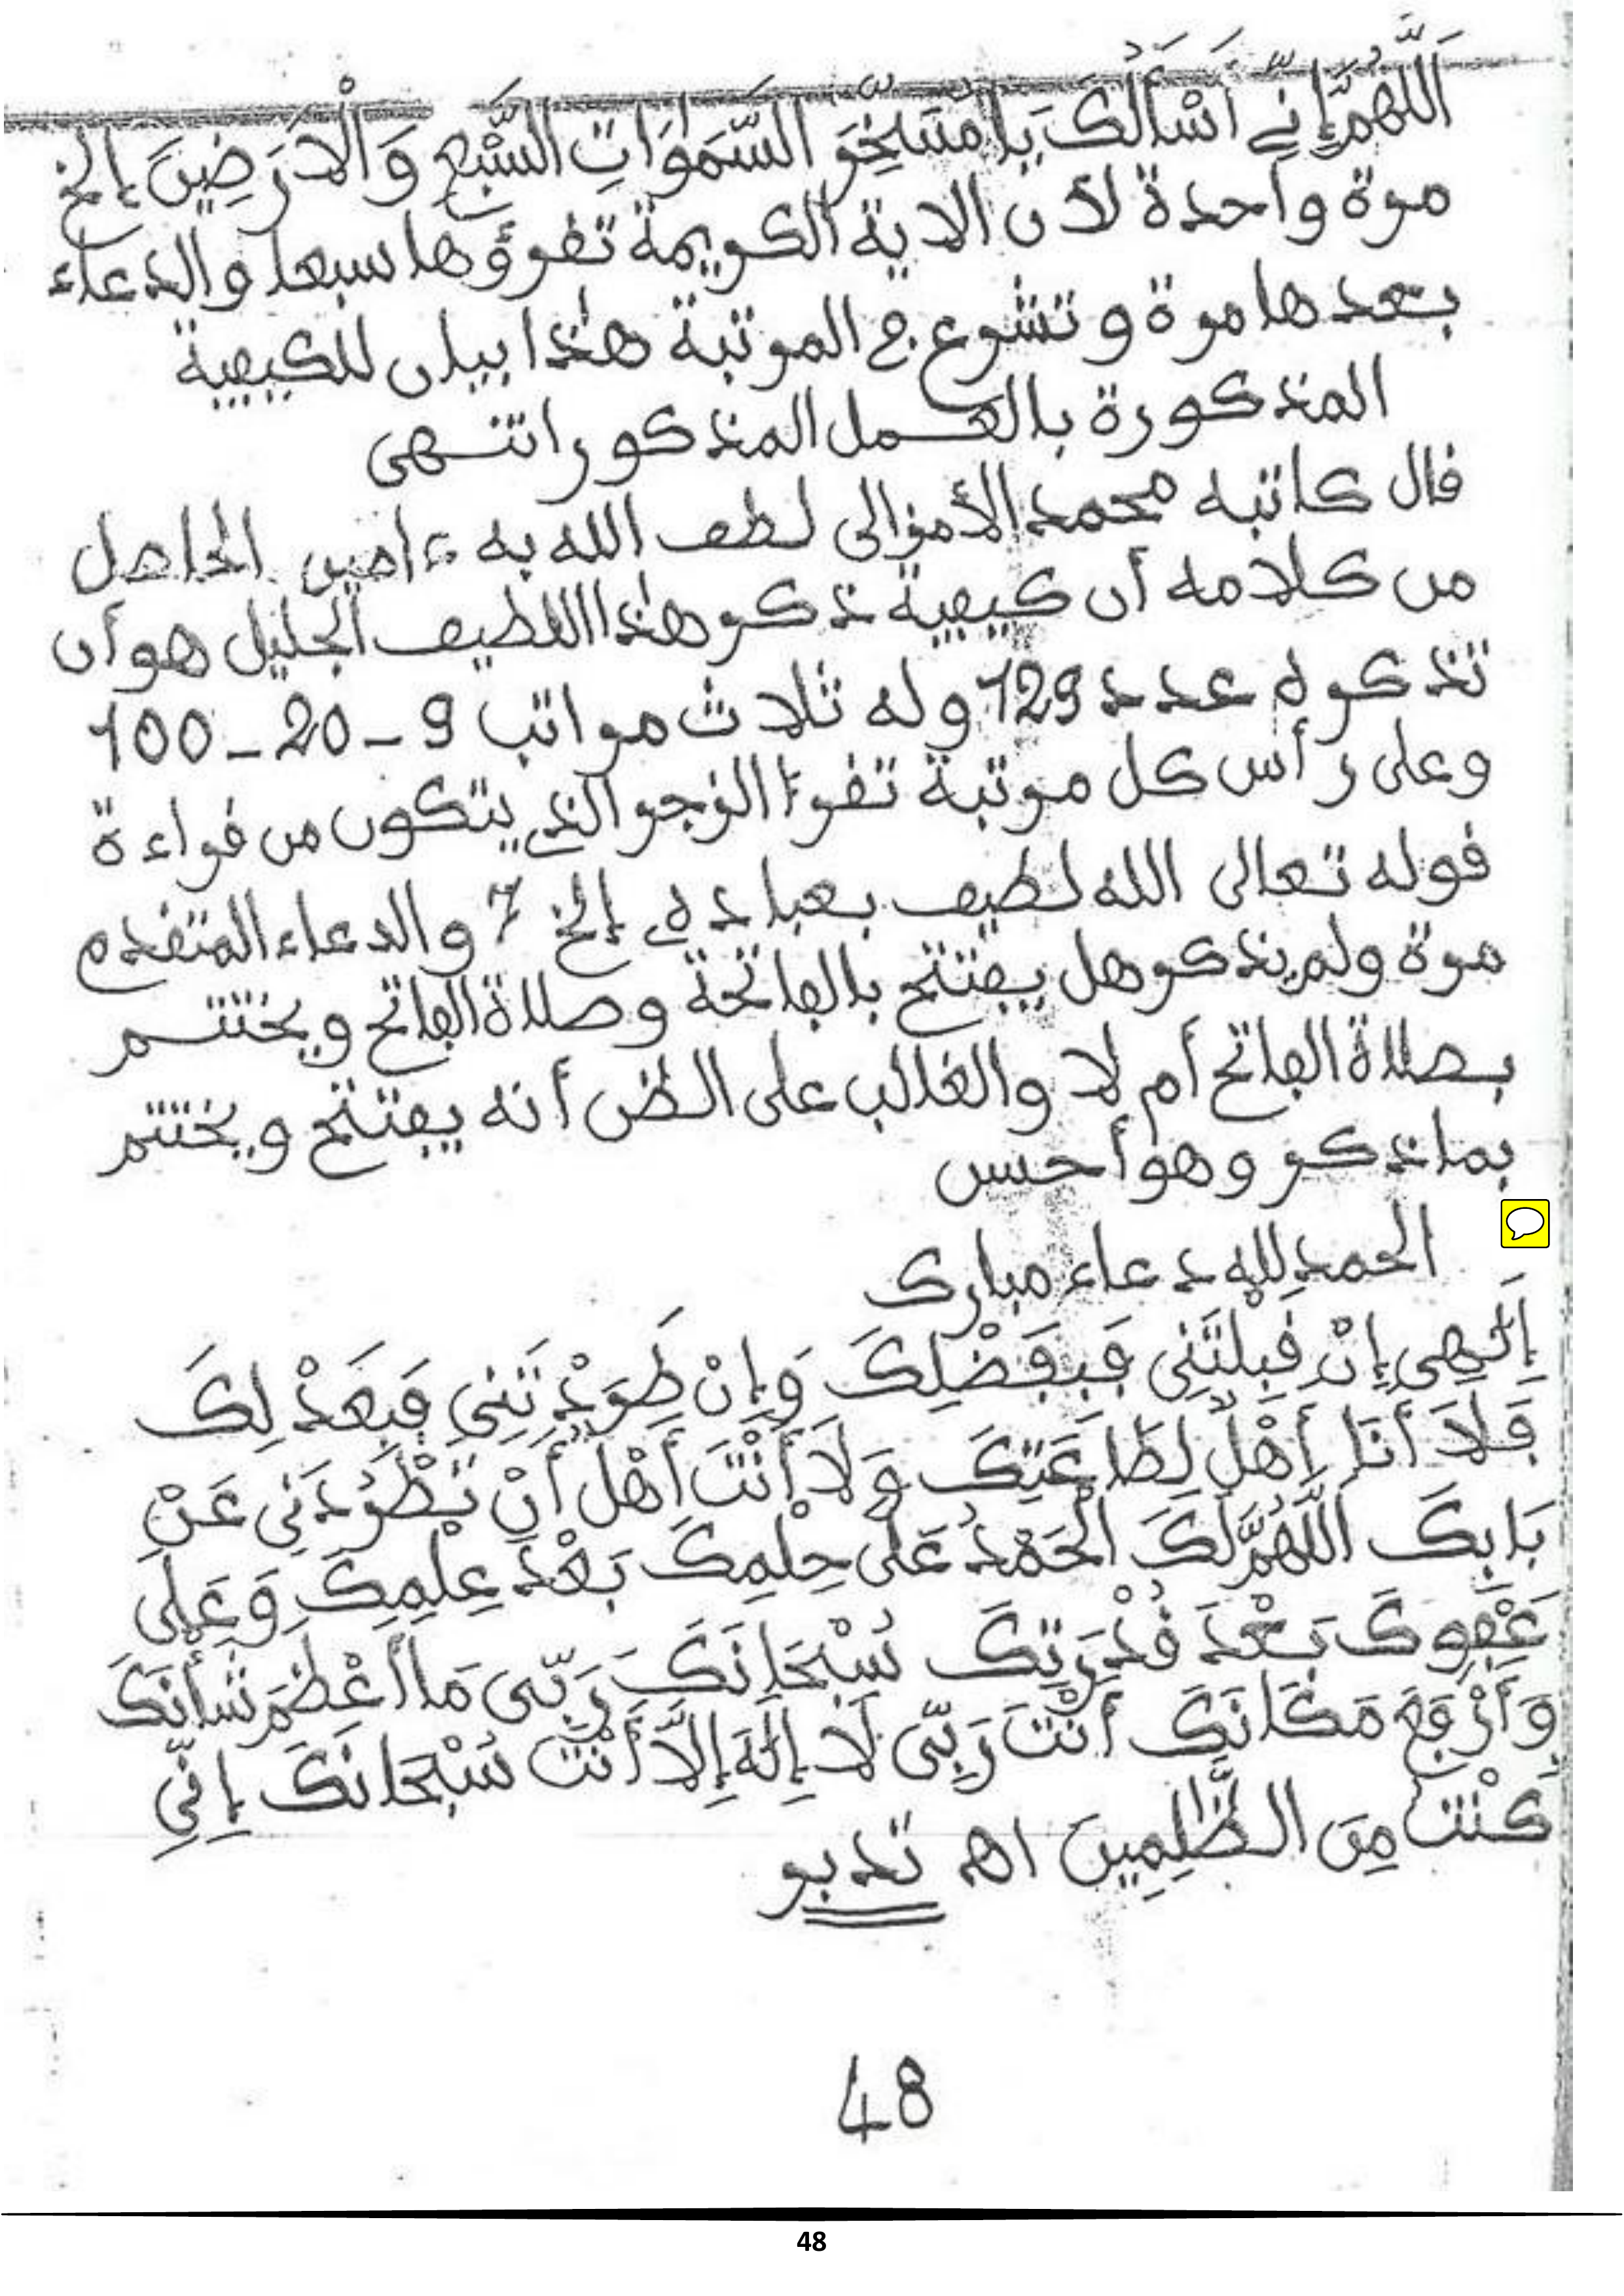 اَللَّهُمَّ إِنِّي أَسْأَلُكَ يَا مُسَخِّرَ السَّمَوَاتِ السَّبْعِ وَالْأَرَضِينَ إلخ
مرة واحدة لأن الآية الكريمة تقرؤها سبعا والدعاء
بعدها مرة وتشرع في المرتبة هذا بيان للكيفية
المذكورة بالعمل المذكور انتهى
قال كاتبه محمد الأمزالي لطف الله به ءامين الحاصل
من كلامه أن كيفية ذكر هذا اللطيف الجليل هو أن
تذكره عدد 129 وله ثلاث مراتب 9 - 20 - 100
وعلى رأس كل مرتبة تقرأ الزجر الذي يتكون من قراءة
قوله تعالى الله لطيف بعباده إلخ 7 والدعاء المتقدم
مرة ولم يذكر هل يفتتح بالفاتحة وصلاة الفاتح ويختتم
بصلاة الفاتح أم لا والغالب على الظن أنه يفتتح ويختتم
بما ذكر وهو أحسن
الحمد لله دعاء مبارك
إِلَهِي إِنْ قَبِلْتَنِي فَبِفَضْلِكَ وَإِنْ طَرَدْتَنِي فَبِعَدْلِكَ
فَلَا أَنَا أَهْلٌ لِطَاعَتِكَ وَلَا أَنْتَ أَهْلٌ أَنْ تَطْرُدَنِي عَنْ
بَابِكَ اللَّهُمَّ لَكَ الْحَمْدُ عَلَى حِلْمِكَ بَعْدَ عِلْمِكَ وَعَلَى
عَفْوِكَ بَعْدَ قُدْرَتِكَ سُبْحَانَكَ رَبِّي مَا أَعْظَمَ شَأْنَكَ
وَأَرْفَعَ مَكَانَكَ أَنْتَ رَبِّي لَا إِلَهَ إِلَّا أَنْتَ سُبْحَانَكَ إِنِّي
كُنْتُ مِنَ الظَّالِمِينَ اهـ تدبر
48
48